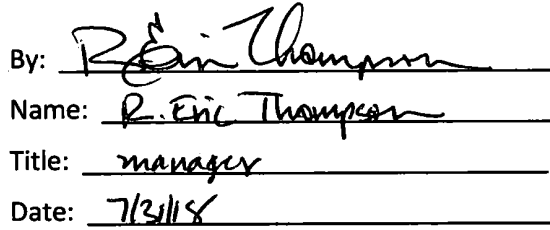 By: R. Eric Thompson
Name: R. Eric Thompson
Title: manager
Date: 7/31/18